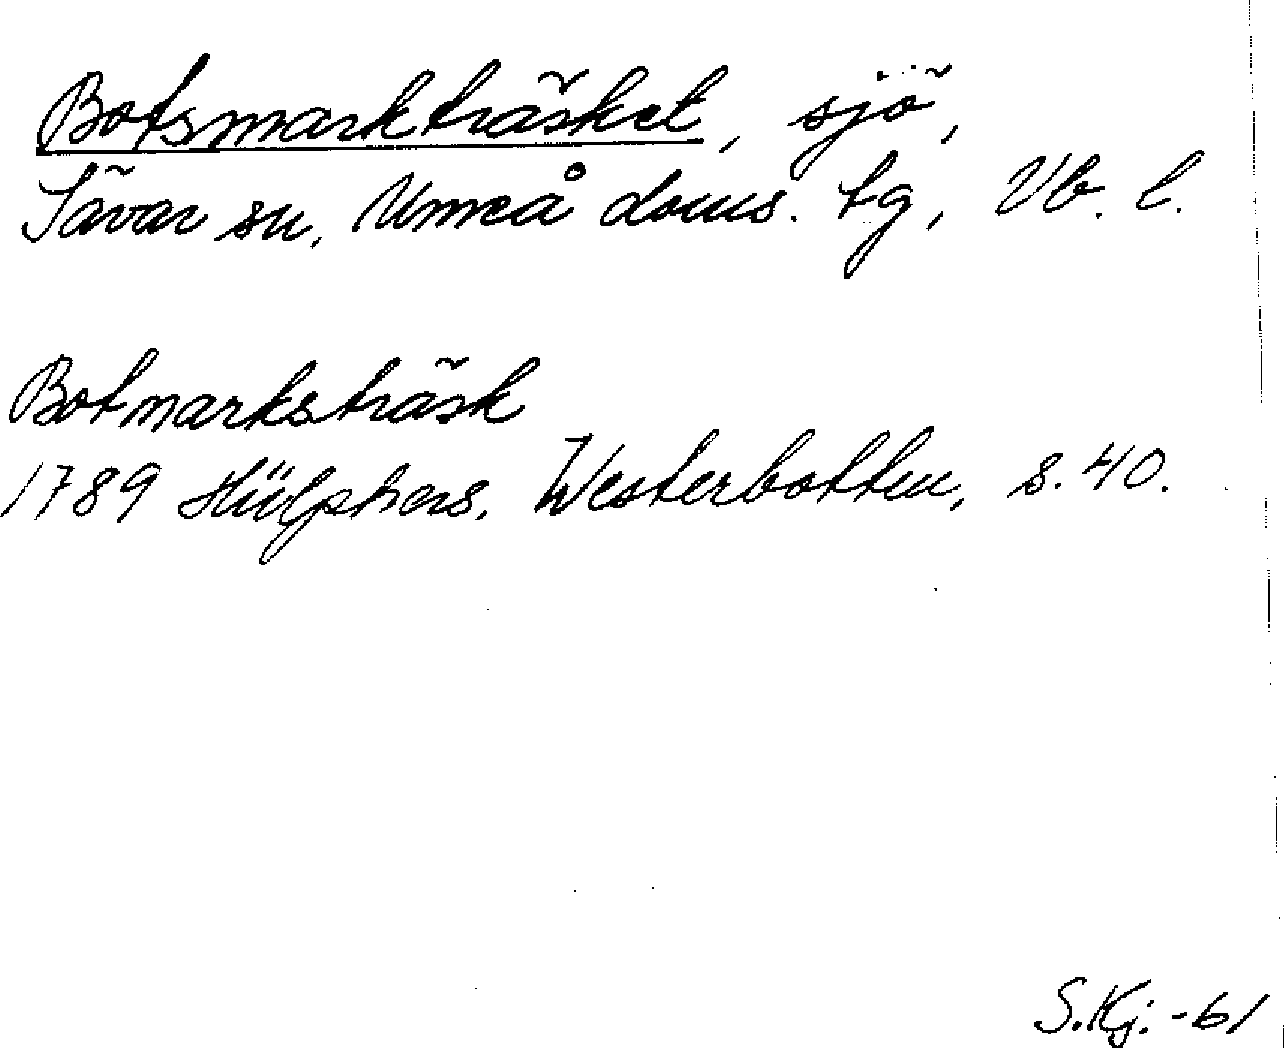 Botsmarkträsket, sjö,
Sävar sn, Umeå doms. tg, Vb. l.
Botmarksträsk
1789 Hülphers, Westerbotten, s. 40.
S.Kj. -61